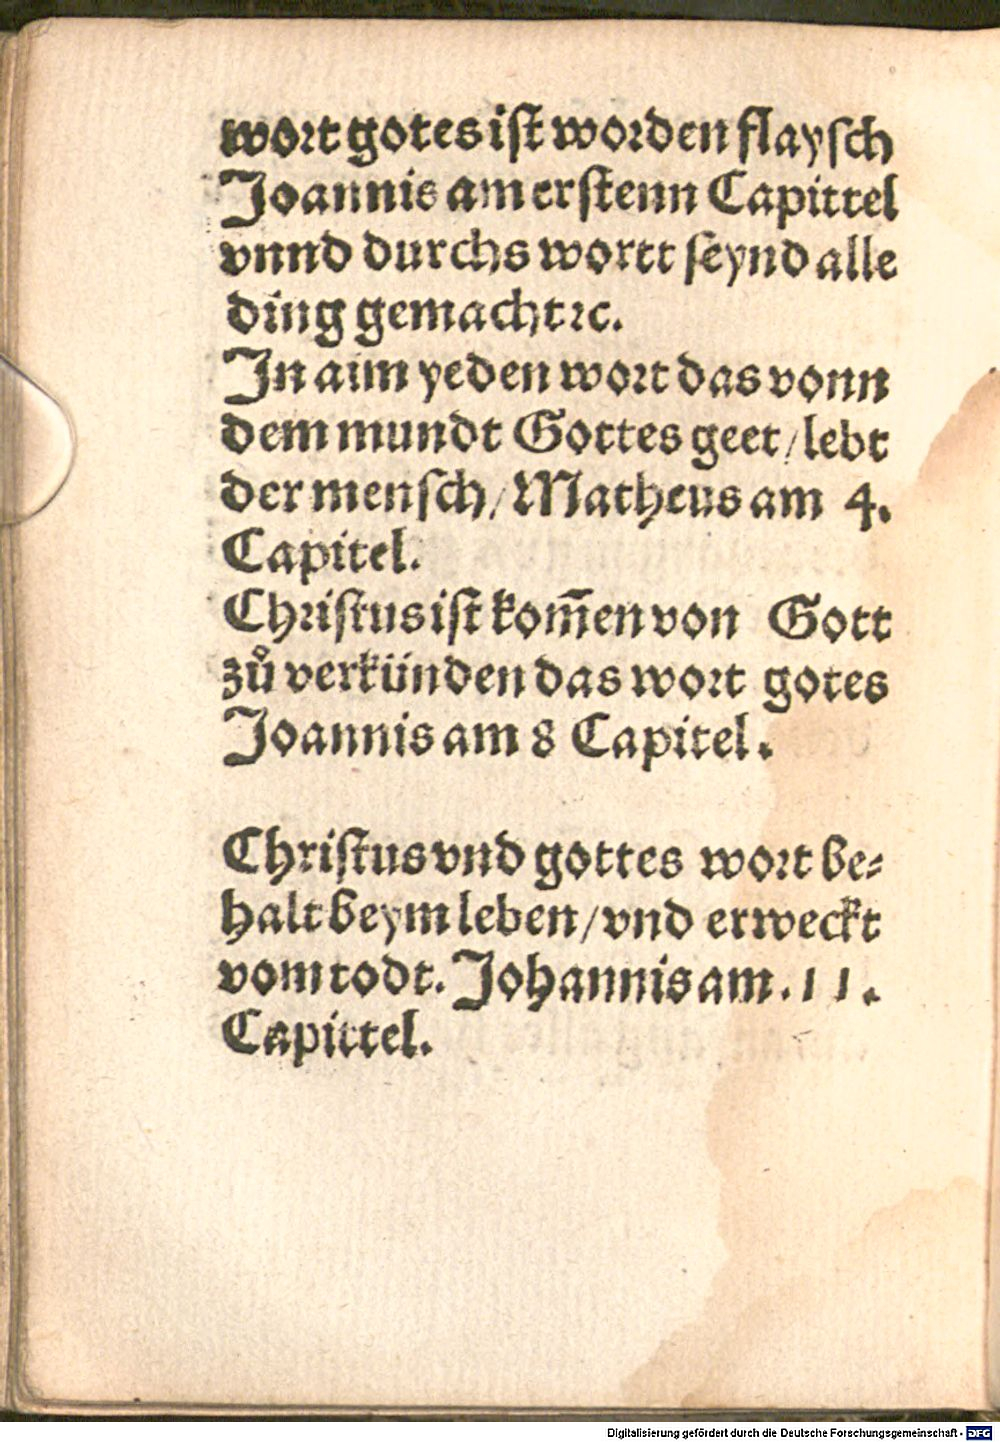 wort gotes ist worden flaysch
Joannis am erstenn Capittel
vnnd durchs wortt seynd alle
ding gemacht ꝛc.
In aim yeden wort das vonn
dem mundt Gottes geet / lebt
der mensch / Matheus am 4.
Capitel.
Christus ist kom̃en von Gott
zů verkünden das wort gotes
Joannis am 8 Capitel.
Christus vnd gottes wort be⸗
halt beym leben / vnd erweckt
vom todt. Johannis am . 11.
Capittel.
Digitalisierung gefördert durch die Deutsche Forschungsgemeinschaft - DFG